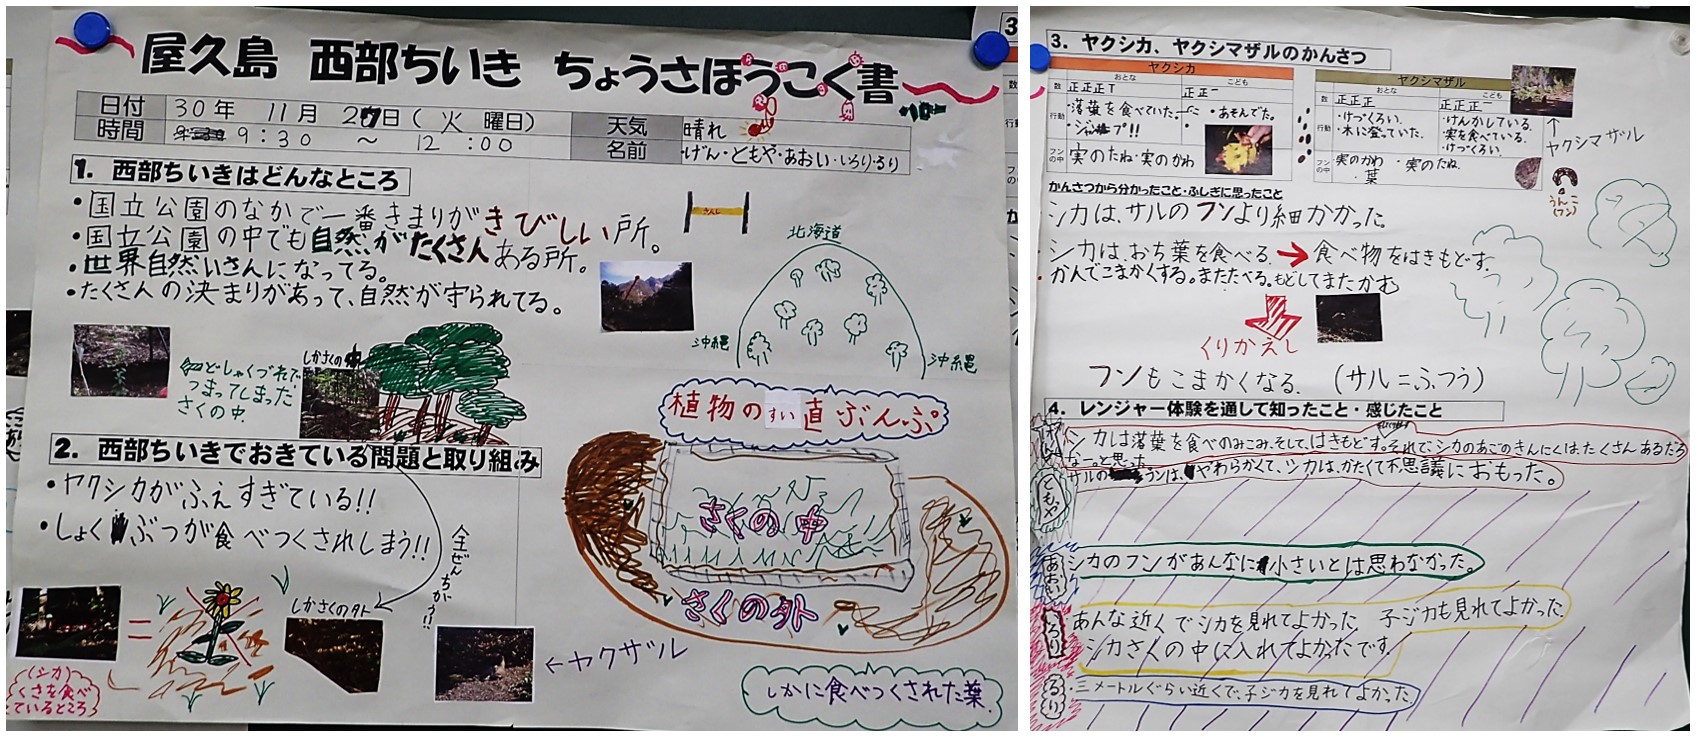 屋久島 西部ちいき ちょうさほうこく書
日付 30年 11月 27日(火 曜日) 天気 晴れ
時間 9:30 ～ 12:00 名前 ・げん・ともや・あおい・いろり・るり
1. 西部ちいきはどんなところ
・国立公園のなかで一番きまりがきびしい所。
・国立公園の中でも自然がたくさんある所。
・世界自然いさんになってる。
・たくさんの決まりがあって、自然が守られてる。
北海道
沖縄
沖縄
しかさくの中
どしゃくづれで
つまってしまった
さくの中
植物のすい直ぶんぷ
さくの中
さくの外
2. 西部ちいきでおきている問題と取り組み
・ヤクシカがふえすぎている!!
・しょくぶつが食べつくされしまう!!
全ぜんちがう!!
しかさくの外
(シカ)
くさを食べ
ているところ
=
←ヤクザル
しかに食べつくされた葉
3. ヤクシカ、ヤクシマザルのかんさつ
ヤクシカ
おとな こども
数 正正正T 正正一
行動 ・落葉を食べていた。 ・あそんでた。
・ジャンプ!!
フンの中 実のたね・実のかわ
ヤクシマザル
おとな こども
数 正正正 正正正一
行動 ・けっくろい。 ・けんかしている。
・木に登っていた。 ・実を食べている。
・けっくろい。
フンの中 実のかわ ・実のたね
・葉
↑
ヤクシマザル
うんこ
(フン)
かんさつから分かったこと・ふしぎに思ったこと
シカは、サルのフンより細かかった。
シカは、おち葉を食べる。→食べ物をはきもどす。
・かんでこまかくする。またたべる。もどしてまたかむ
くりかえし
フンもこまかくなる。(サル=ふつう)
4. レンジャー体験を通して知ったこと・感じたこと
げん
シカは落葉を食べのみこみ、そして、はきもどす。それで、シカのあごのきんにくは、たくさんあるだろ
なーっと思った
ともや
サルのフンは、やわらかくて、シカは、かたくて不思議におもった。
あおい
シカのフンがあんなに小さいとは思わなかった。
いろり
あんな近くでシカを見れてよかった 子ジカも見れてよかった
シカさくの中に入れてよかったです。
るり
・三メートルぐらい近くで、子ジカを見れてよかった